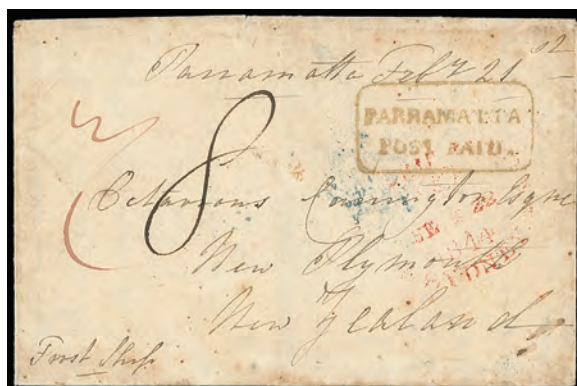 Parramatta Feby 21st
PARRAMATTA
POST PAID
8
Octavious Carrington Esqre
New Plymouth
New Zealand
First Ship